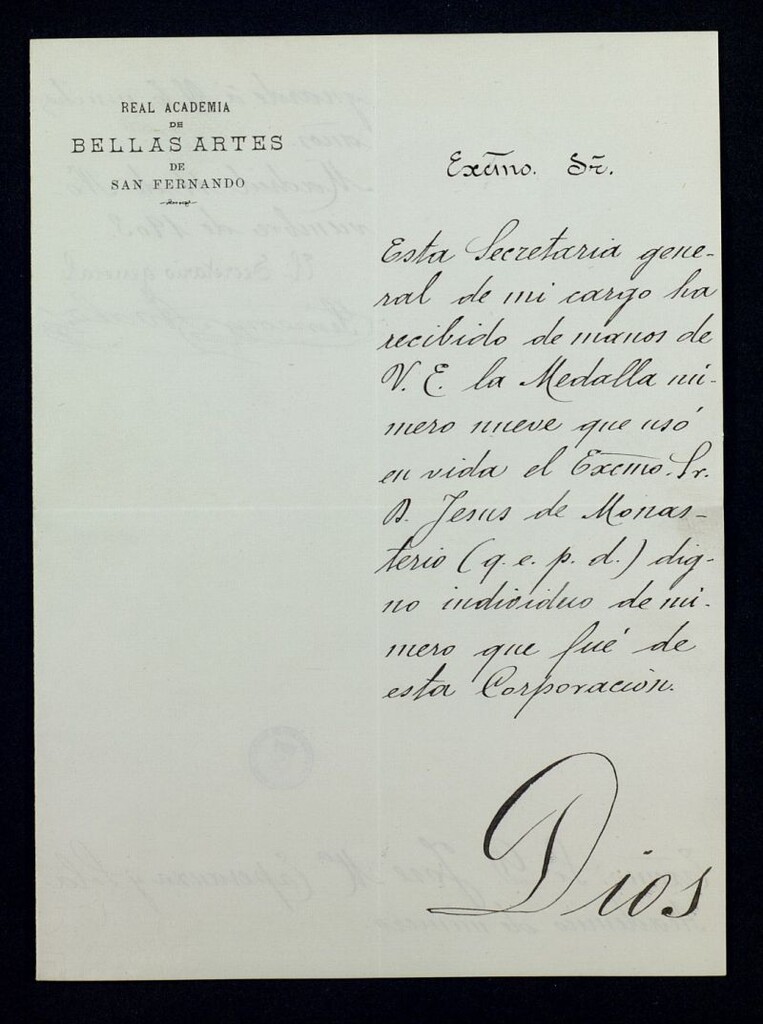 REAL ACADEMIA
DE
BELLAS ARTES
DE
SAN FERNANDO
Excmo. Sr.
Esta Secretaria gene-
ral de mi cargo ha
recibido de manos de
V. E. la Medalla nú-
mero nueve que usó
en vida el Excmo. Sr.
D. Jesus de Monas-
terio (q. e. p. d.) dig-
no individuo de nú-
mero que fué de
esta Corporación.
Dios